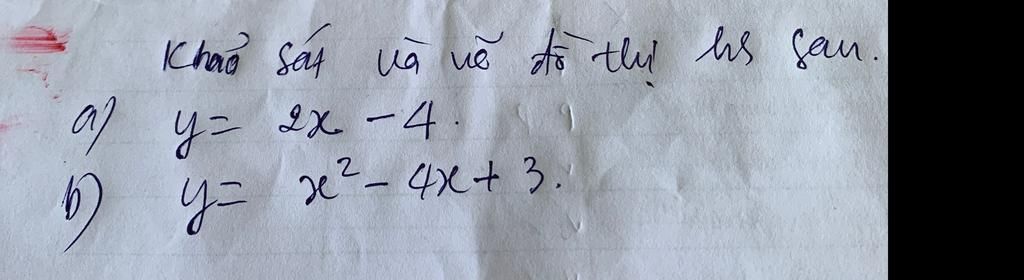 Khảo sát và vẽ đồ thị hs sau.
a) y = 2x - 4.
b) y = x² - 4x + 3.